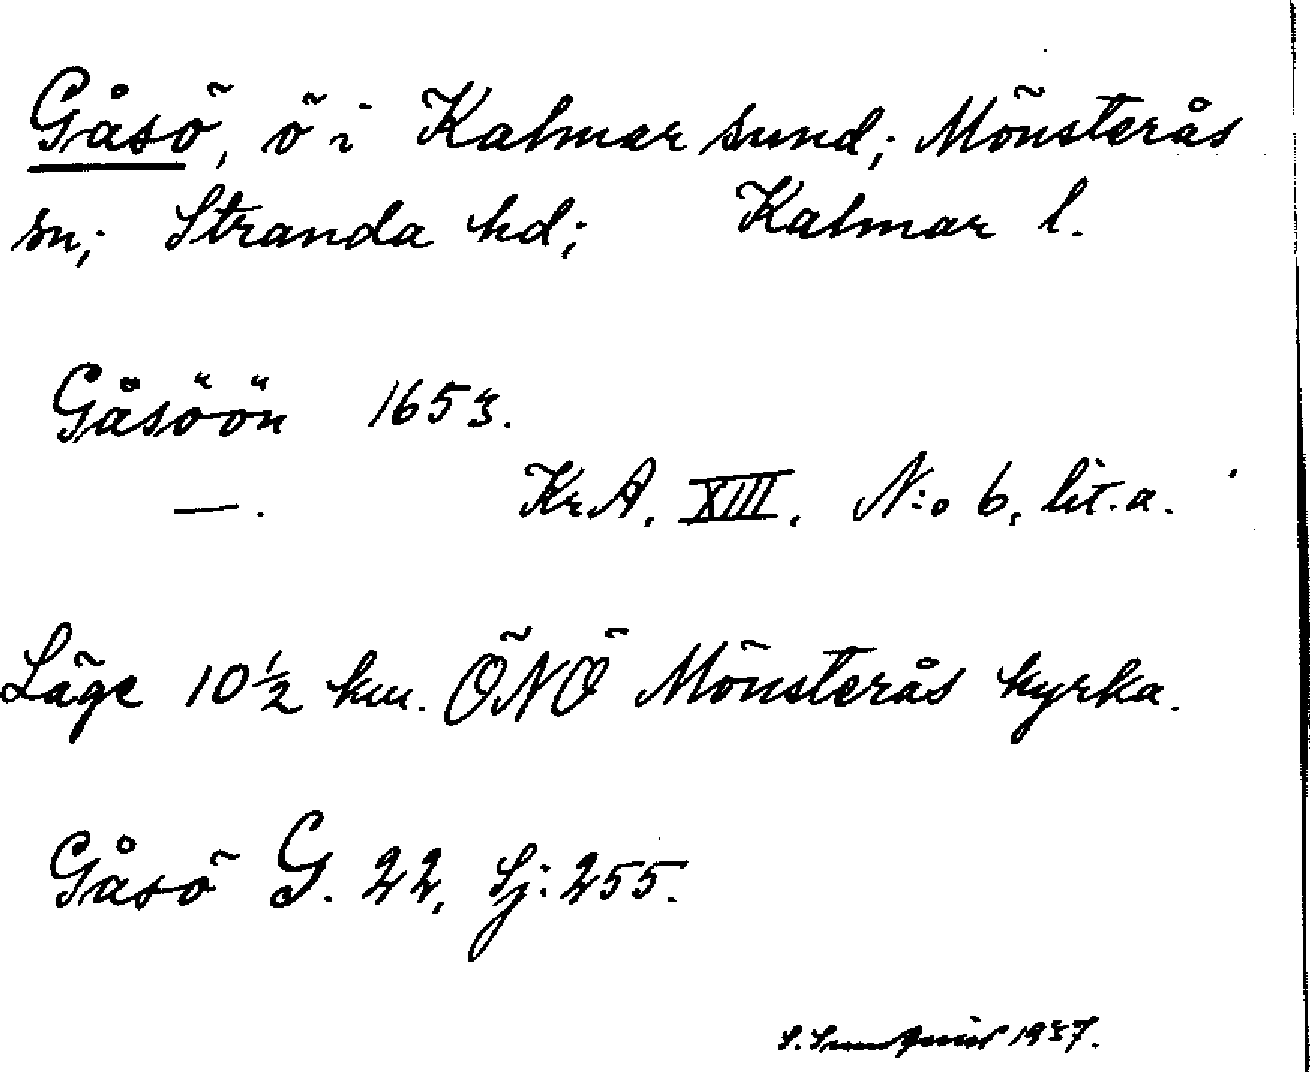 Gåsö, ö i Kalmar sund; Mönsterås
sn; Stranda hd; Kalmar l.
Gåsöön 1653.
—. KrA. XIII. N:o 6, lit. a.
Läge 10½ km. ÖNÖ Mönsterås kyrka.
Gåsö G. 22, Sj: 255.
S. 1937.